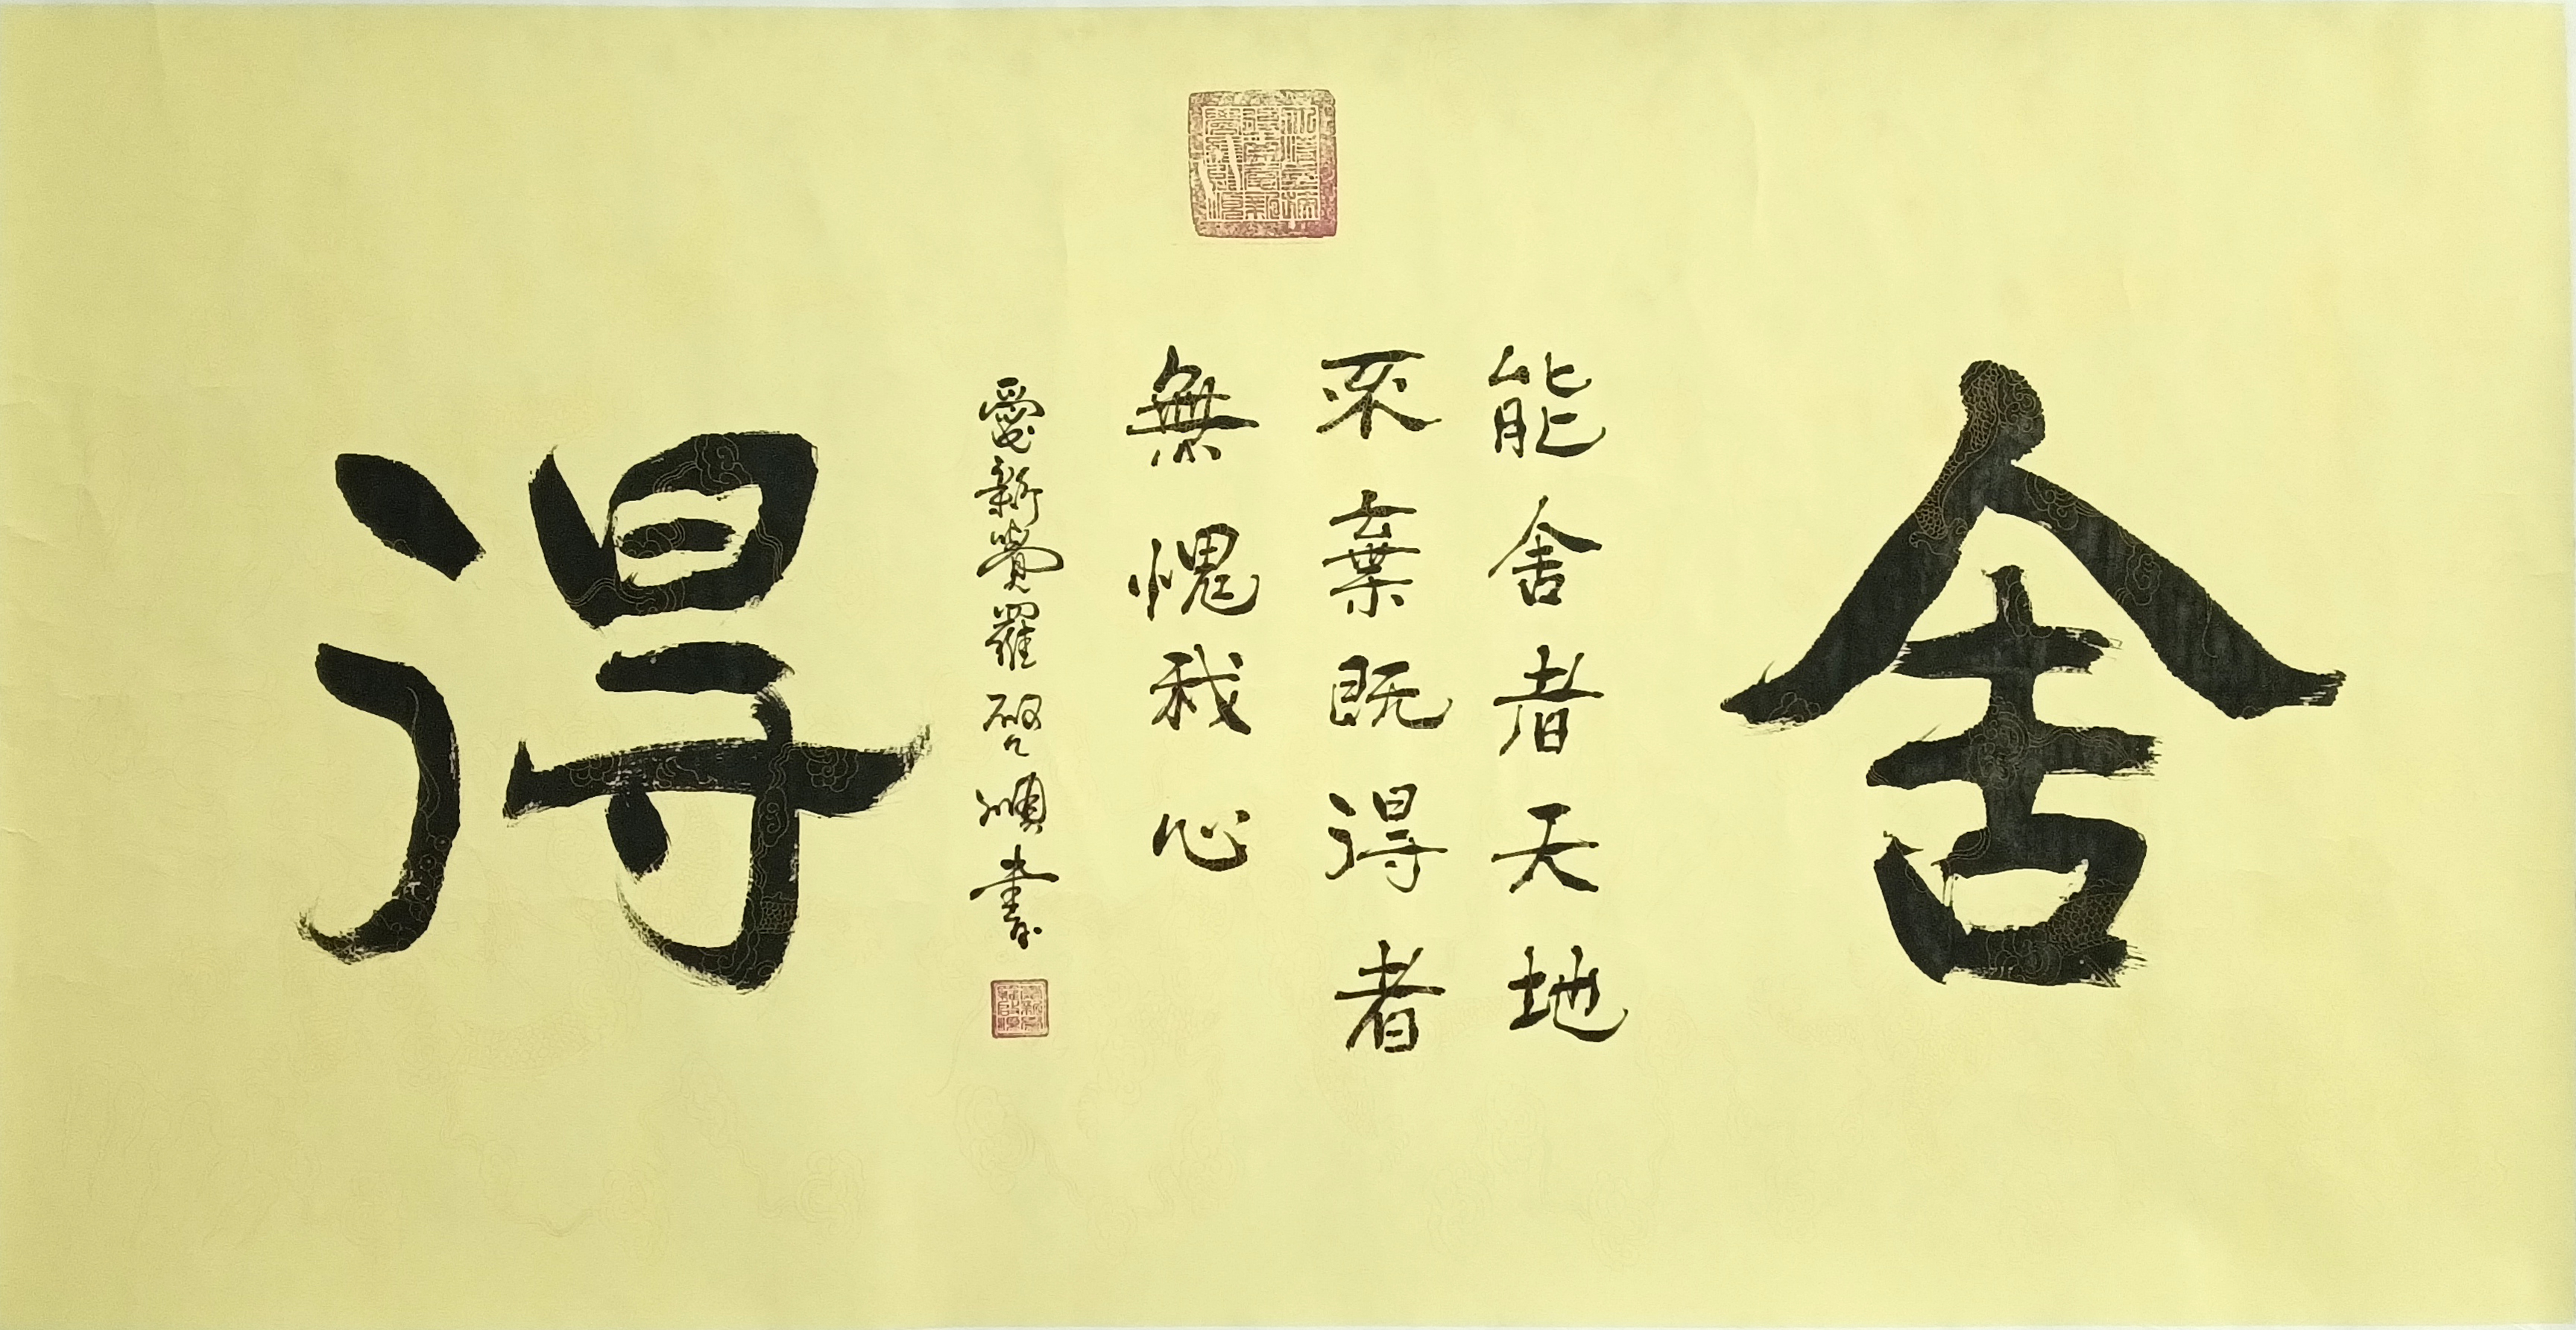 舍
能舍者天地
不棄既得者
無愧我心
愛新覺羅啟順書
得